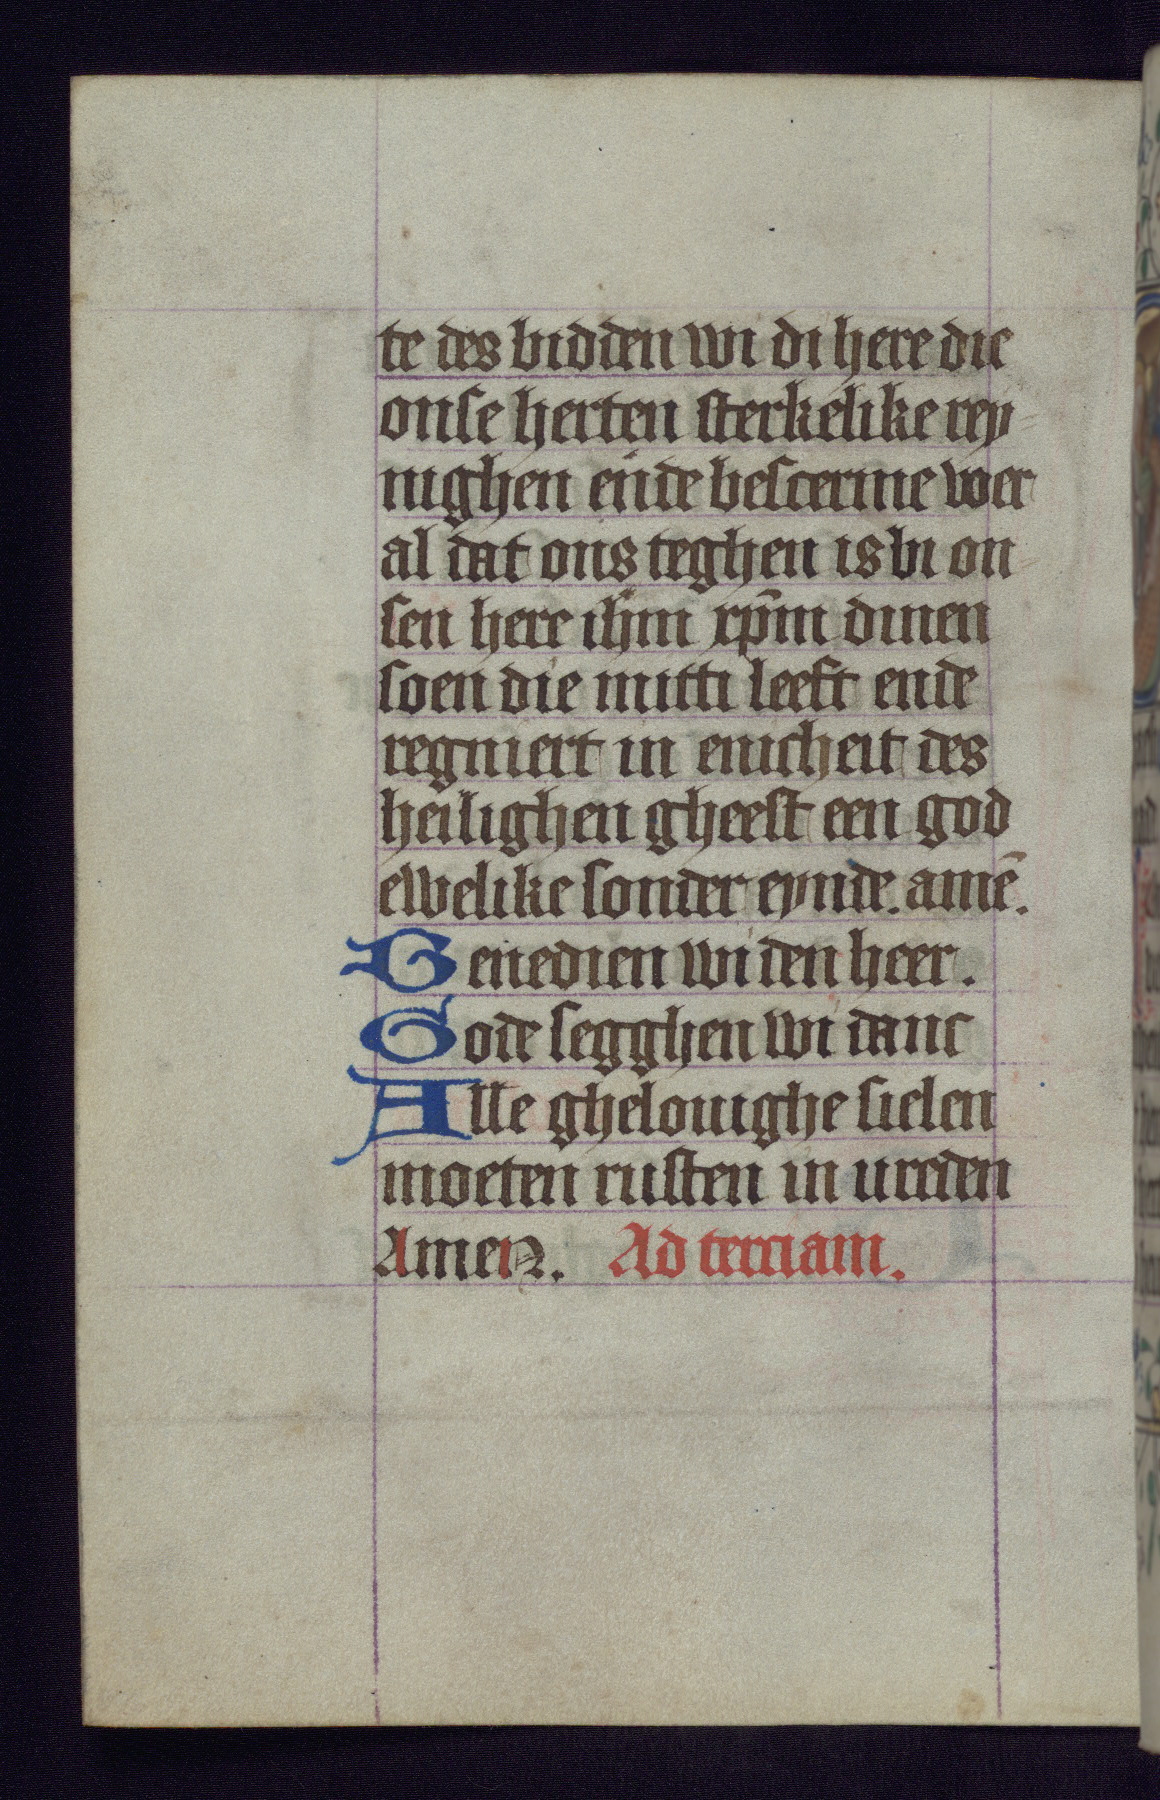 te des bidden wi di here die
onse herten sterkelike rey-
nighen ende bescerme voer
al dat ons teghen is bi on-
sen here ihm xp̄m dinen
soen die mitti leeft ende
regniert in enicheit des
heilighen gheest een god
ewelike sonder eynde. amē.
Benedien wi den heer.
Gode segghen wi danc
Alle ghelouighe sielen
moeten rusten in ureden
Amen. Ad terciam.